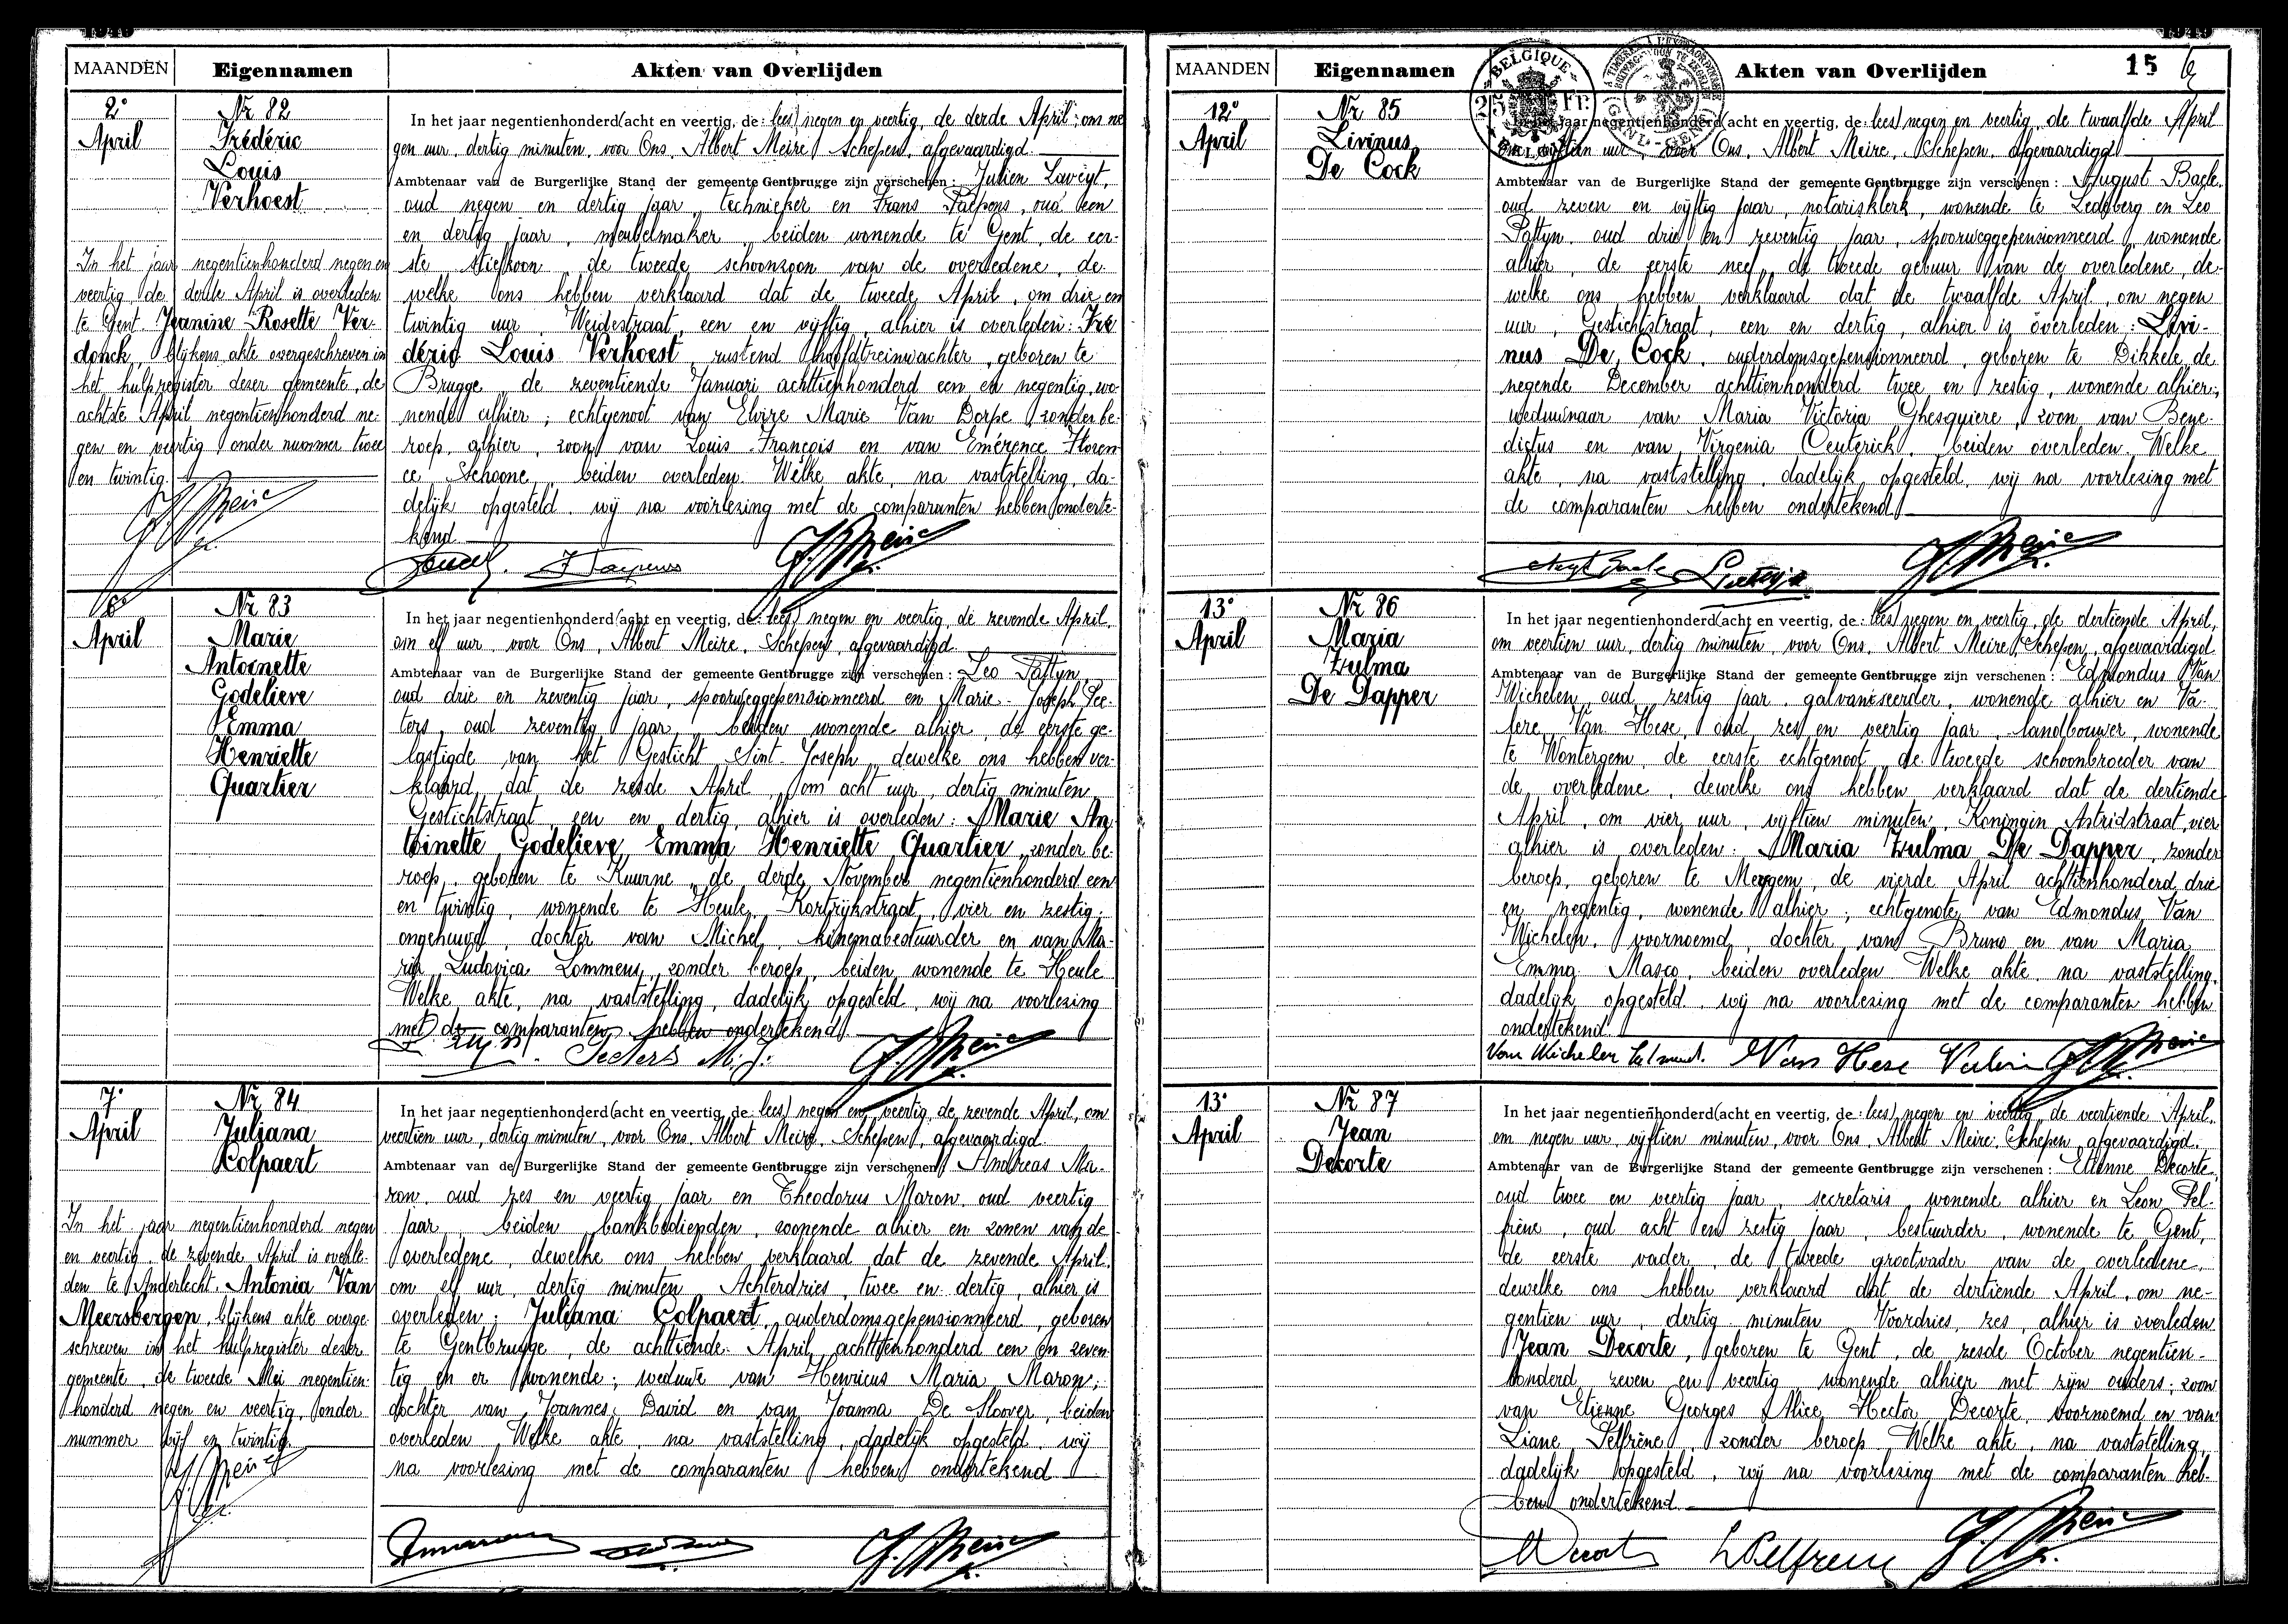 1949
MAANDEN
Eigennamen
Akten van Overlijden
2°
April
Nr 82
Frédéric
Louis
Verhoest
In het jaar negentienhonderd negen en
veertig de derde April is overleden
te Gent Jeanine Rosette Ver-
donck, blijkens akte overgeschreven in
het hulpregister dezer gemeente, de
achtste April negentienhonderd ne-
gen en veertig onder nummer twee
en twintig.
In het jaar negentienhonderd (acht en veertig, de: lees) negen en veertig, de derde April, om ne
gen uur, dertig minuten, voor Ons, Albert Meire, Schepen, afgevaardigd
Ambtenaar van de Burgerlijke Stand der gemeente Gentbrugge zijn verschenen: Julien
oud negen en dertig jaar, technieker en Frans Paepens, oud een
en dertig jaar, meubelmaker, beiden wonende te Gent, de eer-
ste stiefzoon, de tweede schoonzoon van de overledene, de-
welke ons hebben verklaard dat de tweede April, om drie en
twintig uur, Weidestraat, een en vijftig, alhier is overleden: Fré
déric Louis Verhoest, rustend hoofdtreinwachter, geboren te
Brugge, de zeventiende Januari achttienhonderd een en negentig, wo-
nende alhier; echtgenoot van Elvire Marie Van Dorpe, zonder be-
roep, alhier, zoon van Louis François en van Emérence Floren
ce Schoone, beiden overleden. Welke akte, na vaststelling, da-
delijk opgesteld, wij na voorlezing met de comparanten hebben onderte-
kend
6°
April
Nr 83
Marie
Antoinette
Godelieve
Emma
Henriette
Quartier
In het jaar negentienhonderd (acht en veertig, de: lees) negen en veertig, de zevende April,
om elf uur, voor Ons, Albert Meire, Schepen, afgevaardigd
Ambtenaar van de Burgerlijke Stand der gemeente Gentbrugge zijn verschenen: Leo Pattyn,
oud drie en zeventig jaar, spoorweggepensionneerd en Marie-Joseph Pee-
ters, oud zeventig jaar, beiden wonende alhier, de eerste ge-
lastigde van het Gesticht Sint-Joseph, dewelke ons hebben ver-
klaard, dat de zesde April, om acht uur, dertig minuten
Gestichtstraat, een en dertig, alhier is overleden: Marie An
toinette Godelieve Emma Henriette Quartier, zonder be-
roep, geboren te Kuurne, de derde November negentienhonderd een
en twintig, wonende te Heule, Kortrijkstraat, vier en zestig;
ongehuwd, dochter van Michel, kinemabestuurder en van Ma-
ria Ludovica Lommens, zonder beroep, beiden wonende te Heule
Welke akte, na vaststelling, dadelijk opgesteld, wij na voorlezing
met de comparanten hebben ondertekend
Peeters M.J.
7°
April
Nr 84
Juliana
Colpaert
In het jaar negentienhonderd negen
en veertig, de zevende April is overle-
den te Anderlecht, Antonia Van
Meersbergen, blijkens akte overge-
schreven in het hulpregister dezer
gemeente, de tweede Mei negentien-
honderd negen en veertig, onder
nummer vijf en twintig
In het jaar negentienhonderd (acht en veertig, de: lees) negen en veertig, de zevende April, om
veertien uur, dertig minuten, voor Ons, Albert Meire, Schepen, afgevaardigd
Ambtenaar van de Burgerlijke Stand der gemeente Gentbrugge zijn verschenen Andreas Ma-
ron, oud zes en veertig jaar en Theodorus Maron, oud veertig
jaar, beiden bankbedienden, wonende alhier en zonen van de
overledene, dewelke ons hebben verklaard dat de zevende April
om elf uur, dertig minuten Achterdries, twee en dertig, alhier is
overleden: Juliana Colpaert, ouderdomsgepensionneerd, geboren
te Gentbrugge, de achttiende April achttienhonderd een en zeven-
tig en er wonende; weduwe van Henricus Maria Maron;
dochter van Joannes David en van Joanna De Sloover, beiden
overleden. Welke akte, na vaststelling, dadelijk opgesteld, wij
na voorlezing met de comparanten hebben ondertekend
1949
MAANDEN
Eigennamen
Akten van Overlijden
15
BELGIQUE
25 Fr.
BELGIE
12°
April
Nr 85
Livinus
De Cock
jaar negentienhonderd (acht en veertig, de: lees) negen en veertig, de twaalfde April
om vijftien uur, voor Ons, Albert Meire, Schepen, afgevaardigd
Ambtenaar van de Burgerlijke Stand der gemeente Gentbrugge zijn verschenen: August Baele,
oud zeven en vijftig jaar, notarisklerk, wonende te Ledeberg en Leo
Pattyn, oud drie en zeventig jaar, spoorweggepensionneerd, wonende
alhier, de eerste neef, de tweede gebuur van de overledene, de-
welke ons hebben verklaard dat de twaalfde April, om negen
uur, Gestichtstraat, een en dertig, alhier is overleden: Livi-
nus De Cock, ouderdomsgepensionneerd, geboren te Dikkele, de
negende December achttienhonderd twee en zestig, wonende alhier;
weduwnaar van Maria Victoria Ghesquiere, zoon van Bene-
dictus en van Virgenia Ceuterick, beiden overleden. Welke
akte, na vaststelling, dadelijk opgesteld, wij na voorlezing met
de comparanten hebben ondertekend
13°
April
Nr 86
Maria
Zulma
De Dapper
In het jaar negentienhonderd (acht en veertig, de: lees) negen en veertig, de dertiende April,
om veertien uur, dertig minuten, voor Ons, Albert Meire, Schepen, afgevaardigd
Ambtenaar van de Burgerlijke Stand der gemeente Gentbrugge zijn verschenen: Edmondus Van
Wichelen, oud zestig jaar, galvaniseerder, wonende alhier en Va-
lere Van Hese, oud zes en veertig jaar, landbouwer, wonende
te Wontergem, de eerste echtgenoot, de tweede schoonbroeder van
de overledene, dewelke ons hebben verklaard dat de dertiende
April, om vier uur, vijftien minuten, Koningin Astridstraat, vier
alhier is overleden: Maria Zulma De Dapper, zonder
beroep, geboren te Meygem, de vierde April achttienhonderd drie
en negentig, wonende alhier; echtgenote van Edmondus Van
Wichelen, voornoemd, dochter van Bruno en van Maria
Emma Masco, beiden overleden Welke akte, na vaststelling,
dadelijk opgesteld, wij na voorlezing met de comparanten hebben
ondertekend
Van Hese
13°
April
Nr 87
Jean
Decorte
In het jaar negentienhonderd (acht en veertig, de: lees) negen en veertig, de veertiende April,
om negen uur, vijftien minuten, voor Ons, Albert Meire, Schepen, afgevaardigd
Ambtenaar van de Burgerlijke Stand der gemeente Gentbrugge zijn verschenen: Etienne Decorte,
oud twee en veertig jaar, secretaris, wonende alhier en Leon Pel-
frène, oud acht en zestig jaar, bestuurder, wonende te Gent,
de eerste vader, de tweede grootvader van de overledene,
dewelke ons hebben verklaard dat de dertiende April, om ne-
gentien uur, dertig minuten Voordries, zes, alhier is overleden
Jean Decorte, geboren te Gent, de zesde October negentien-
honderd zeven en veertig, wonende alhier met zijn ouders; zoon
van Etienne Georges Alice Hector Decorte, voornoemd en van
Liane Pelfrène, zonder beroep Welke akte, na vaststelling,
dadelijk opgesteld, wij na voorlezing met de comparanten heb-
ben ondertekend